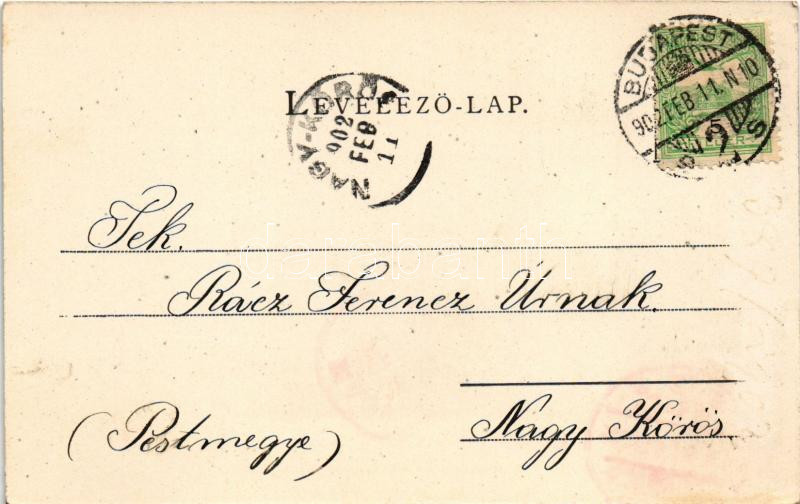 LEVELEZŐ-LAP.
BUDAPEST
902 FEB. 11. N10
NAGY-KŐRÖS
902
FEB
11
Tek.
Rácz Ferencz Úrnak.
Nagy Körös
(Pestmegye)
darabanth